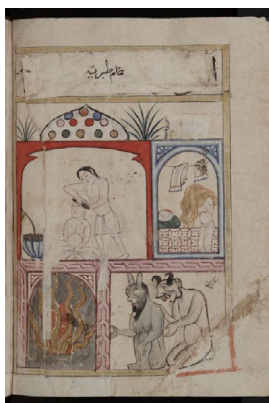 حمام طبرية